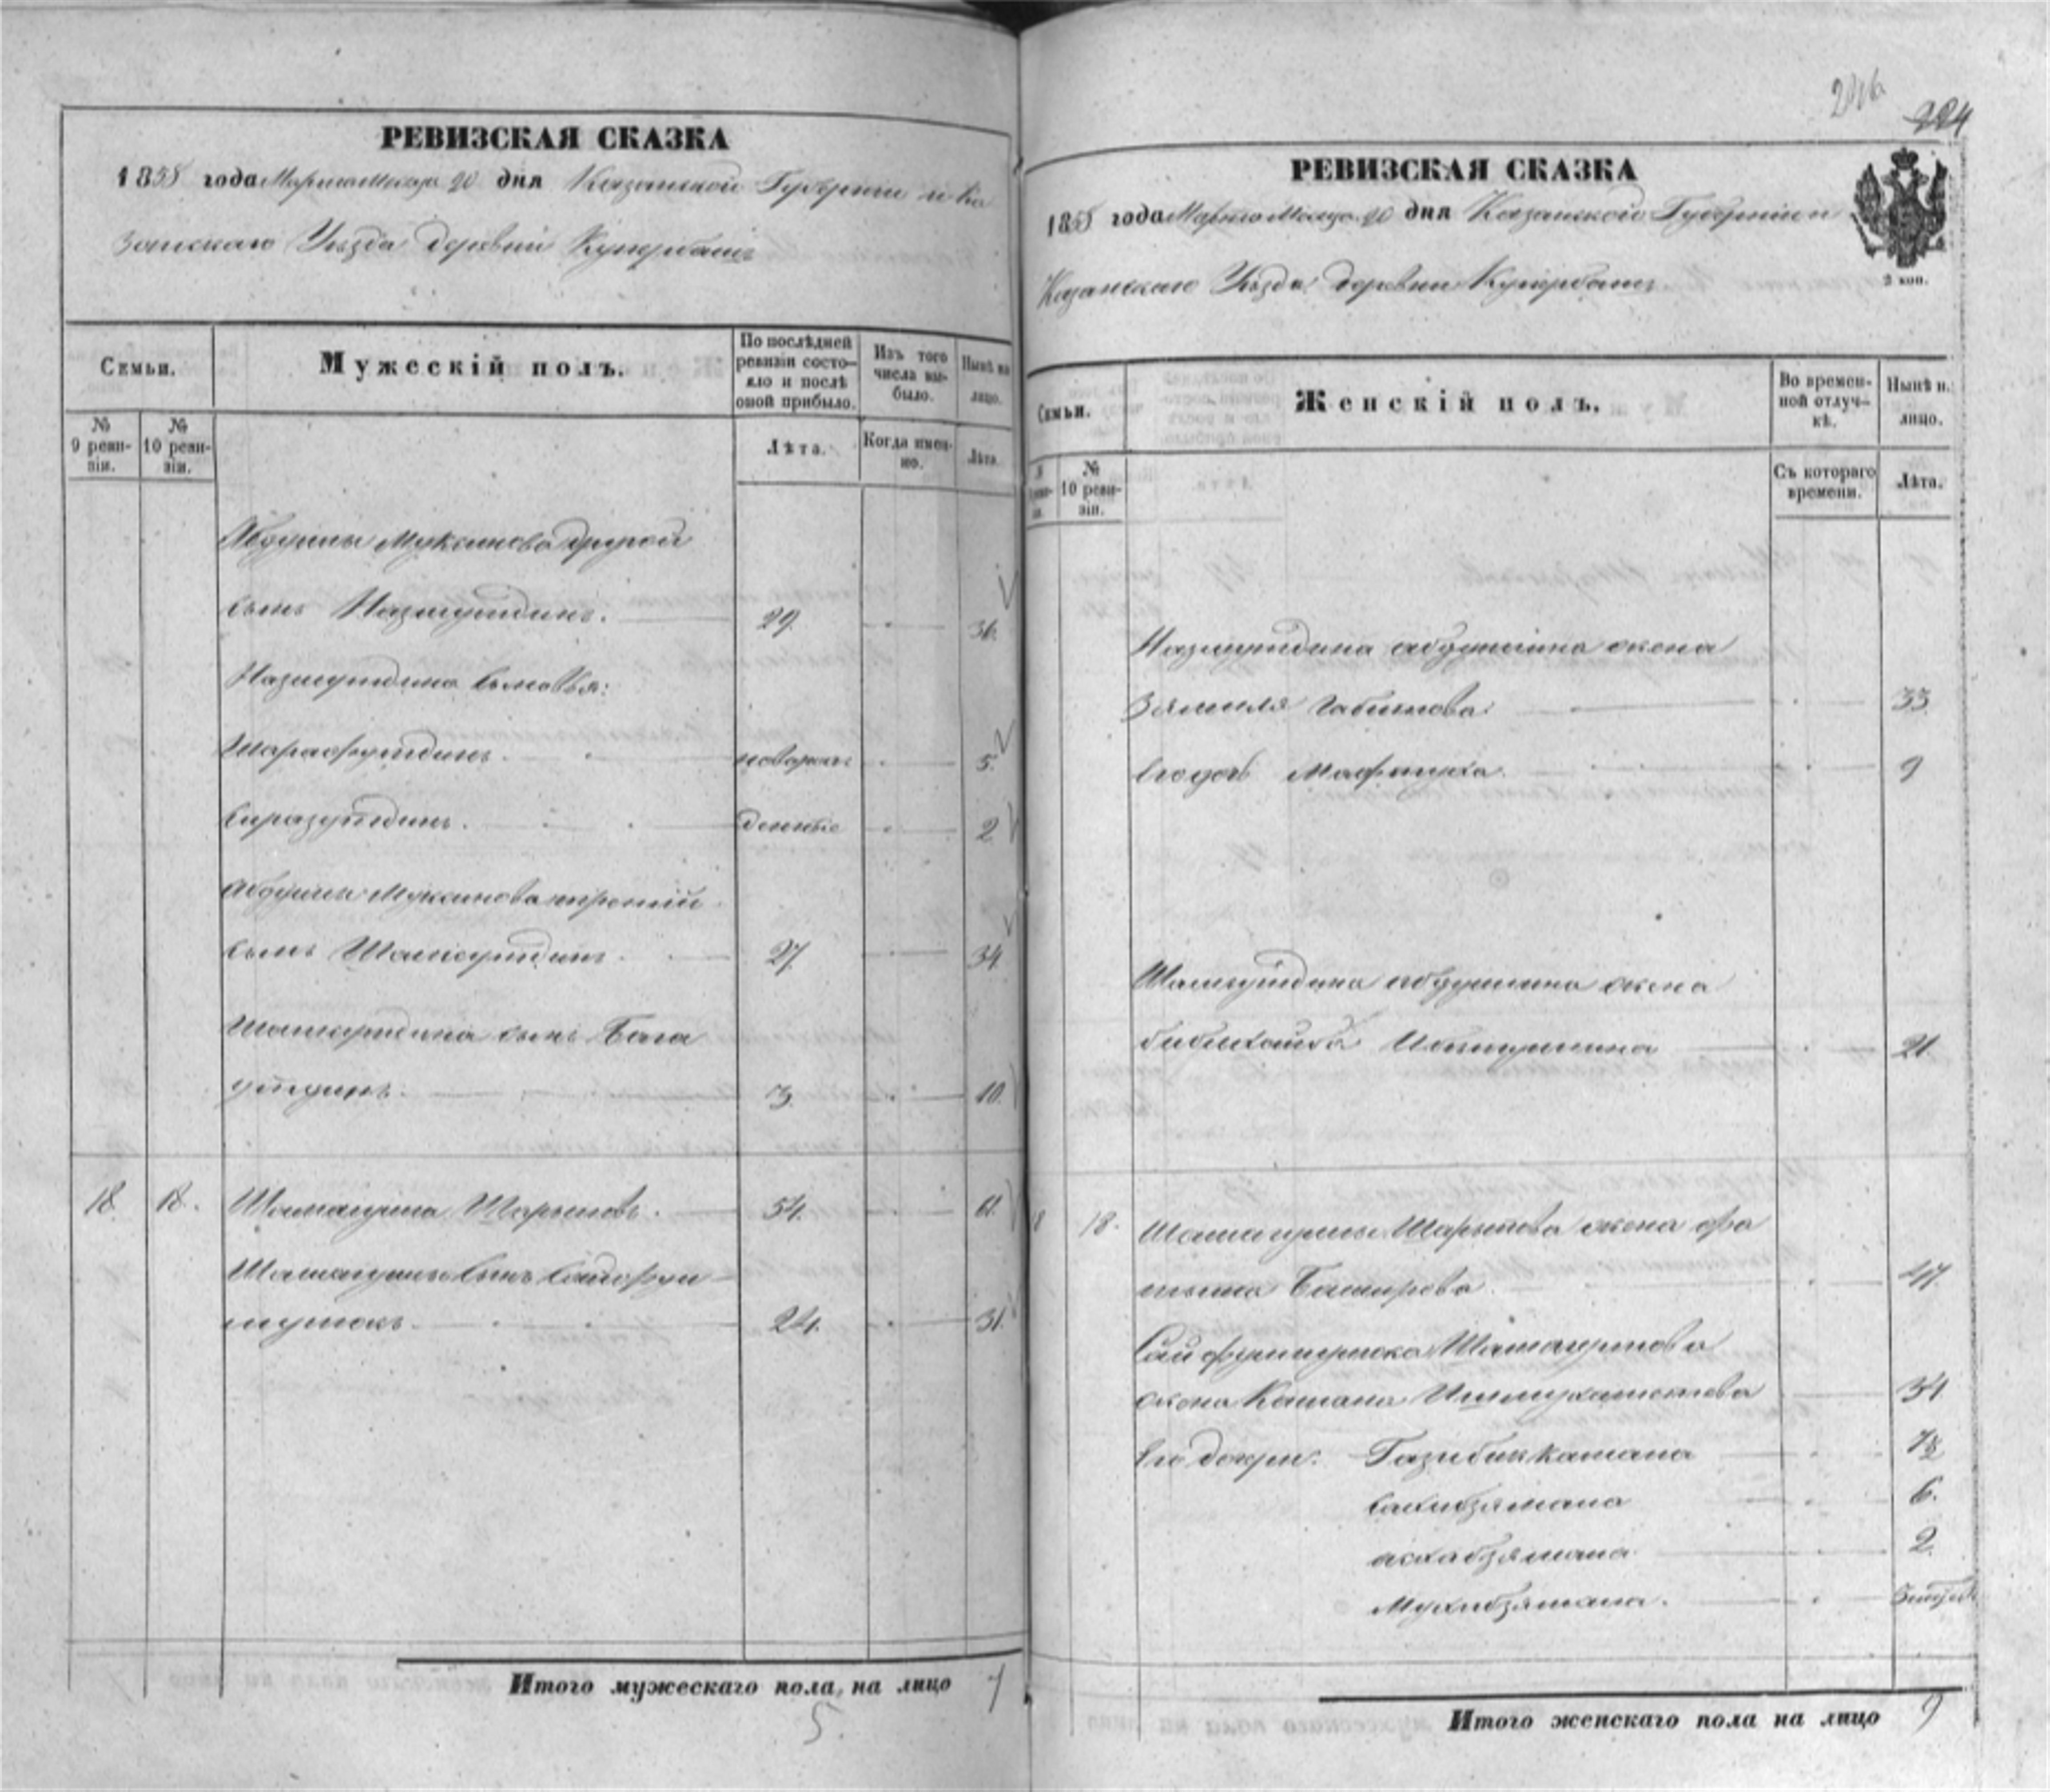 РЕВИЗСКАЯ СКАЗКА
1858 года Марта Месяца 20 дня Казанской Губернии и Ка
занскаго Уезда деревни Купербашъ
Семьи.
Мужескій полъ.
По послѣдней ревизіи состояло и послѣ оной прибыло.
Изъ того числа выбыло.
Нынѣ на лицо.
№ 9 ревизіи.
№ 10 ревизіи.
Лѣта.
Когда именно.
Лѣта.
Абдушы Муксинова другой
сынъ Назмутдинъ. 29. 36.
Назмутдина сыновья:
Шарафутдинъ новорож 5.
Сиразутдинъ. денные 2
Абдушы Муксинова третій
сынъ Шамсутдинъ 27. 34.
Шамсутдина сынъ Бага
утдинъ. 3. 10.
18. 18. Шамагула Шарыповъ. 54. 61.
24. 31.
Итого мужескаго пола на лицо 7
5.
246
224
РЕВИЗСКАЯ СКАЗКА
1858 года Марта Месяца 20 дня Казанской Губерніи и
Казанскаго Уезда деревни Купербашъ
2 коп.
Семьи.
Женскій полъ.
Во временной отлучкѣ.
Нынѣ н. лицо.
№ 10 ревизіи.
Съ котораго времени.
Лѣта.
Назмутдина абдушина жена
Зямиля Габитова 33
его дочь Мафтуха. 9
Шамсутдина абдушина жена
21
8 18. Шамагулы Шарыпова жена Фа
тыма Баширова. 47
Сайфулмулюка Шамагулова
жена Камана Ишмухаметева 34
Его дочери: Газибиккамана
Сахибзямана 6.
асхабзямана 2.
Мухибзямана.
Итого женскаго пола на лицо 9